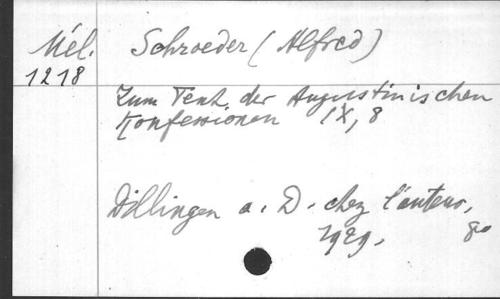 Mél.
1218
Schroeder (Alfred)
Zum Text der Augustinischen
Konfessionen IX, 8
Dillingen a. D. chez l'auteur,
1929. 8o